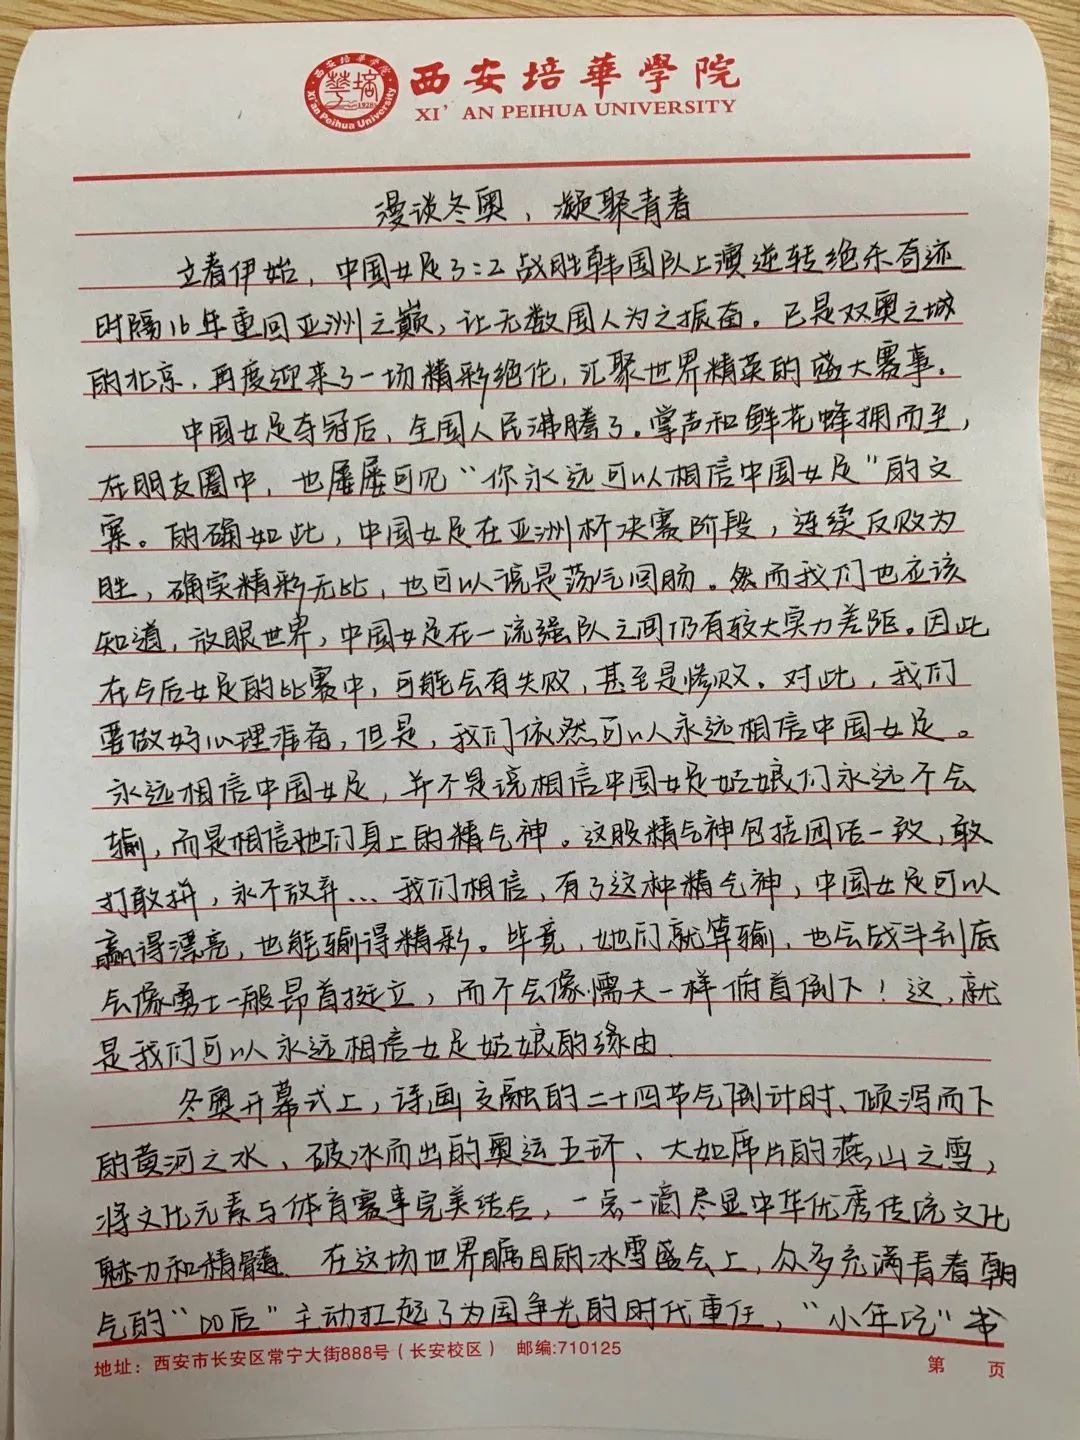 西安培華學院
XI'AN PEIHUA UNIVERSITY
西安培華學院
Xi'an Peihua University
1928
漫谈冬奥，凝聚青春
立春伊始，中国女足3:2战胜韩国队上演逆转绝杀奇迹
时隔16年重回亚洲之巅，让无数国人为之振奋。已是双奥之城
的北京，再度迎来了一场精彩绝伦，汇聚世界精英的盛大赛事。
中国女足夺冠后，全国人民沸腾了。掌声和鲜花蜂拥而至，
在朋友圈中，也屡屡可见“你永远可以相信中国女足”的文
案。的确如此，中国女足在亚洲杯决赛阶段，连续反败为
胜，确实精彩无比，也可以说是荡气回肠。然而我们也应该
知道，放眼世界，中国女足在一流强队之间仍有较大实力差距。因此
在今后女足的比赛中，可能会有失败，甚至是惨败。对此，我们
要做好心理准备，但是，我们依然可以永远相信中国女足。
永远相信中国女足，并不是说相信中国女足姑娘们永远不会
输，而是相信她们身上的精气神。这股精气神包括团结一致，敢
打敢拼，永不放弃…我们相信，有了这种精气神，中国女足可以
赢得漂亮，也能输得精彩。毕竟，她们就算输，也会战斗到底
会像勇士一般昂首挺立，而不会像懦夫一样俯首倒下！这，就
是我们可以永远相信女足姑娘的缘由.
冬奥开幕式上，诗画交融的二十四节气倒计时、倾泻而下
的黄河之水、破冰而出的奥运五环、大如席片的燕山之雪，
将文化元素与体育赛事完美结合，一点一滴尽显中华优秀传统文化
魅力和精髓. 在这场世界瞩目的冰雪盛会上，众多充满青春朝
气的“00后”主动扛起了为国争光的时代重任，“小年纪”书
地址：西安市长安区常宁大街888号（长安校区） 邮编:710125 第 页